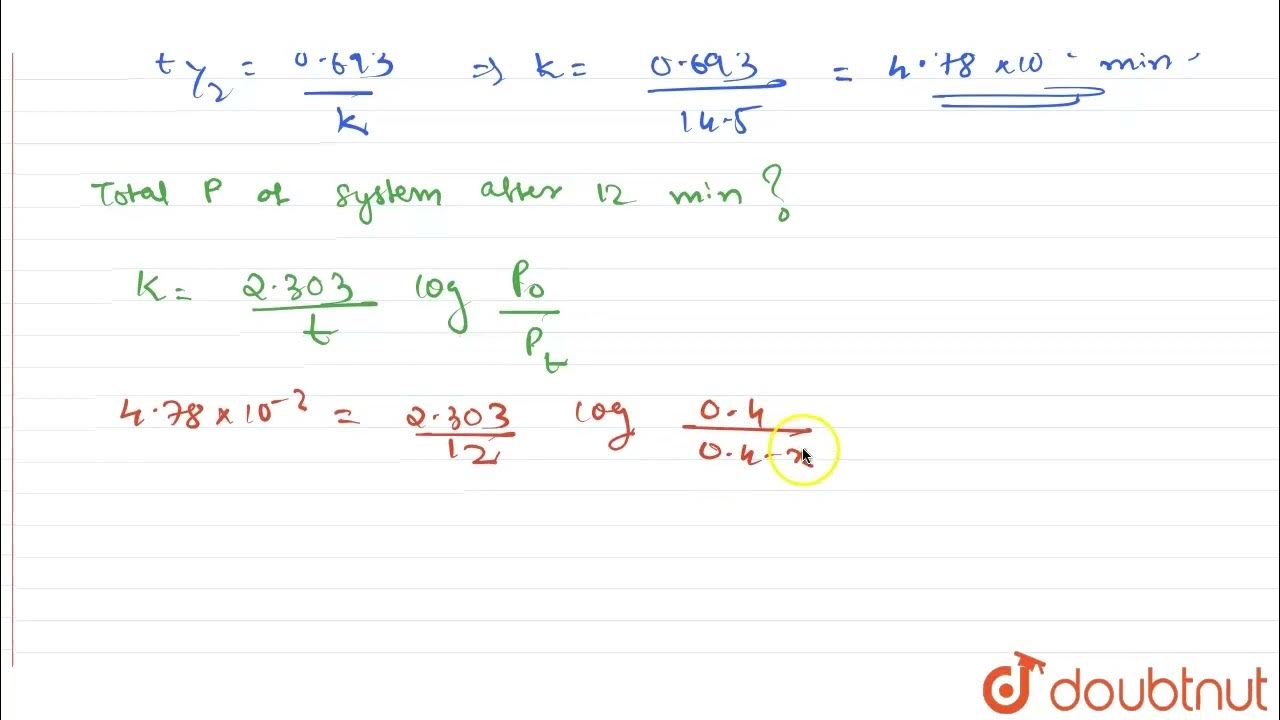 t 1/2 = 0.693 / k ⇒ k = 0.693 / 14.5 = 4.78 × 10 min
Total P of system after 12 min ?
K = 2.303 / t log P0 / Pt
4.78 × 10⁻² = 2.303 / 12 log 0.4 / 0.4 - x
doubtnut